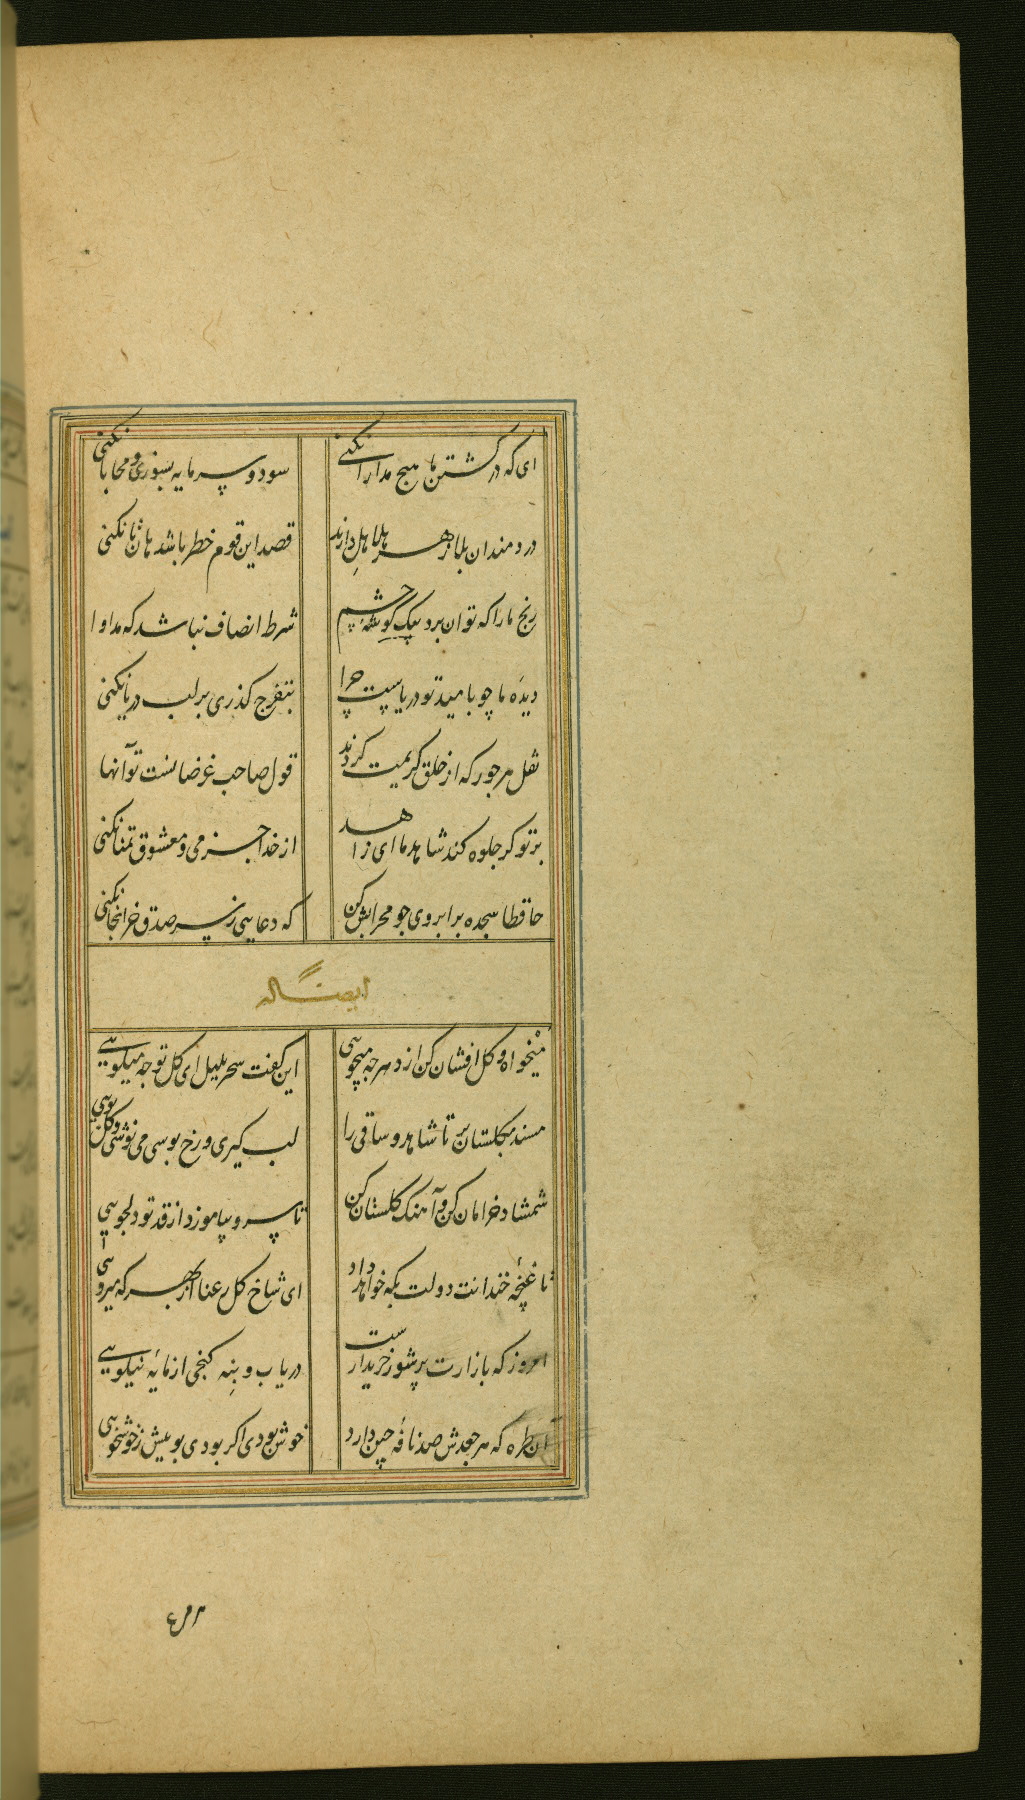 ای که در کشتن ما هیچ مدارا نکنی سود و سرمایه بسوزی و محابا نکنی
دردمندان بلا زهر هلاهل دارند قصد این قوم خطر باشد هان تا نکنی
رنج ما را که توان برد بیک گوشهٔ چشم شرط انصاف نباشد که مداوا
دیدهٔ ما چو بامید تو دریاست چرا بتفرج گذری بر لب دریا نکنی
نقل هر جور که از خلق کریمت کردند قول صاحب غرضانست تو آنها
بر تو گر جلوه کند شاهد ما ای زاهد از خدا جز می و معشوق تمنا نکنی
حافظا سجده بر ابروی چو محرابش کن که دعایی ز سر صدق جز آنجا نکنی
ایضاً له
میخواه و گل افشان کن از دهر چه میجویی این گفت سحر بلبل ای گل تو چه میگویی
مسند بگلستان بر تا شاهد و ساقی را لب گیری و رخ بوسی می نوشی و گل بویی
شمشاد خرامان کن و آهنگ گلستان کن تا سرو بیاموزد از قد تو دلجویی
تا غنچهٔ خندانت دولت بکه خواهد داد ای شاخ گل رعنا از بهر که میرویی
امروز که بازارت پرشور خریدارست دریاب و بنه گنجی از مایهٔ نیکویی
آن طره که هر جعدش صد نافهٔ چین دارد خوش بودی اگر بودی بوییش ز خوشخویی